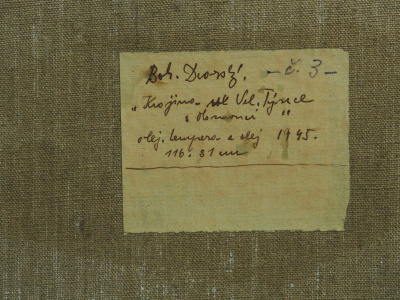 Boh. Dvorský. – č. 3 –
„Krajina Vel. Týnce
olej. tempera a olej 1945.
116. 81 cm